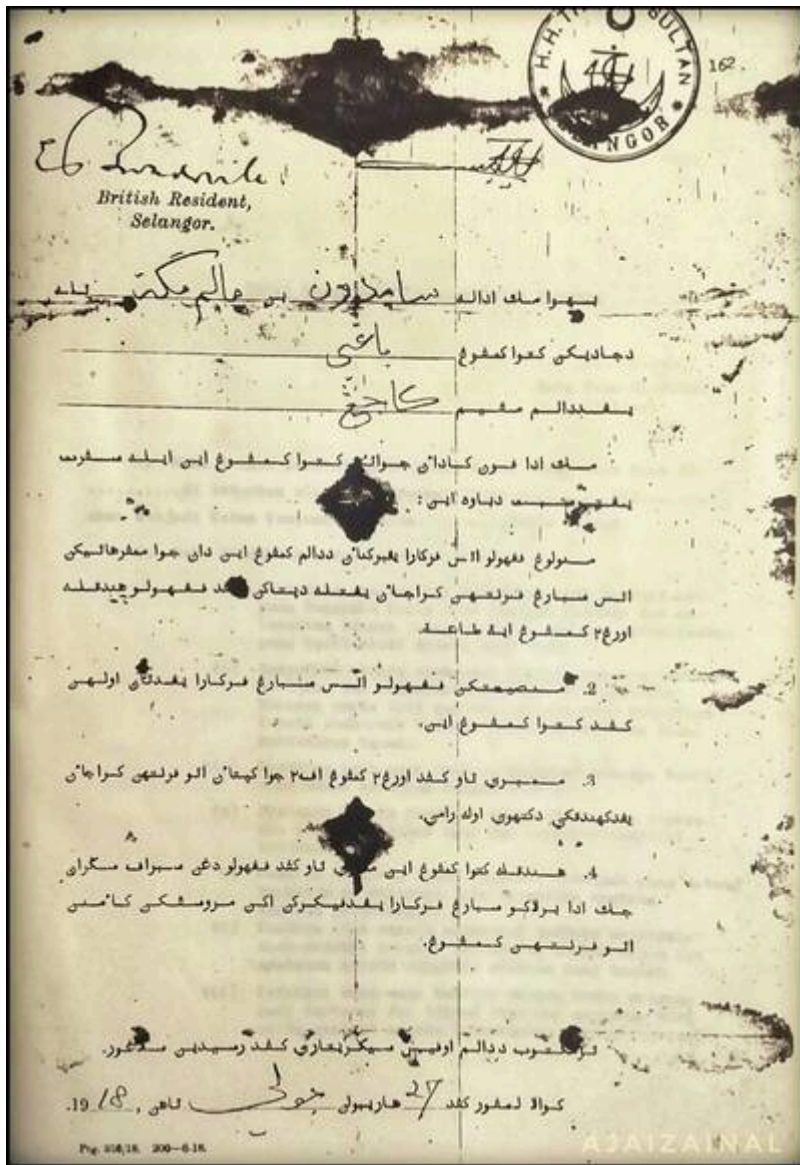 H.H. THE SULTAN
SELANGOR
162.
British Resident,
Selangor.
بهوا مك اداله سامدرون بن حاليم مڬت
دجاديکن کتوا کمڤوڠ باڠي
يڠددالم مقيم کاجڠ
مك ادا ڤون کاداٴن جواتن کتوا کمڤوڠ اين ايله سڤرت
يڠترسبت دباوه اين :
منولوڠ ڤڠهولو اتس ڤرکارا يڠبرکناٴن ددالم کمڤوڠ اين دان جوا ممڤرهاتيکن
اتس سبارڠ ڤرنتهن کراجاٴن يڠتله دپتاکن کڤد ڤڠهولو هندقله
اورڠ٢ کمڤوڠ ايت طاعة.
2. منصيحتکن ڤڠهولو اتس سبارڠ ڤرکارا يڠدتاٴن اوليهن
کڤد کتوا کمڤوڠ اين.
3. ممبري تاو کڤد اورڠ٢ کمڤوڠ اڤ٢ جوا کپتاٴن اتو ڤرنتهن کراجاٴن
يڠدکهندقکي دکتهوي اوله رامي.
4. هندقله کتوا کمڤوڠ اين ممبري تاو کڤد ڤڠهولو دڠن سبراڤ سڬران
جك ادا برلاکو سبارڠ ڤرکارا يڠدڤيکرکن اکن مروسقکن کاٴمنن
اتو ڤرنتهن کمڤوڠ.
ترمکتوب ددالم اوڤيس سيکريتاري کڤد رسيدين سلاڠور.
کوالا لمڤور کڤد 27 هاريبولن جولي تاهن 1918.
Pog. 316/18. 200—6-18.
AJAIZAINAL